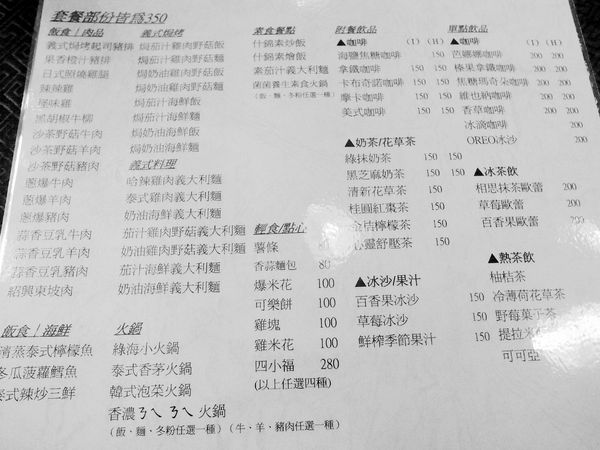 套餐部份皆為350
飯食 / 肉品
義式焗烤起司豬排
果香橙汁豬排
日式照燒雞腿
辣辣雞
怪味雞
黑胡椒牛柳
沙茶野菇牛肉
沙茶野菇羊肉
沙茶野菇豬肉
蔥爆牛肉
蔥爆羊肉
蔥爆豬肉
蒜香豆乳牛肉
蒜香豆乳羊肉
蒜香豆乳豬肉
紹興東坡肉
飯食 / 海鮮
清蒸泰式檸檬魚
冬瓜菠蘿鱈魚
泰式辣炒三鮮
義式焗烤
焗茄汁雞肉野菇飯
焗茄汁雞肉野菇麵
焗奶油雞肉野菇飯
焗奶油雞肉野菇麵
焗茄汁海鮮飯
焗茄汁海鮮麵
焗奶油海鮮飯
焗奶油海鮮麵
義式料理
哈辣雞肉義大利麵
泰式雞肉義大利麵
奶油海鮮義大利麵
茄汁雞肉野菇義大利麵
奶油雞肉野菇義大利麵
茄汁海鮮義大利麵
奶油海鮮義大利麵
火鍋
綠海小火鍋
泰式香茅火鍋
韓式泡菜火鍋
香濃ㄋㄟㄋㄟ火鍋
(飯、麵、冬粉任選一種) (牛、羊、豬肉任選一種)
素食餐點
什錦素炒飯
什錦素燴飯
素茄汁義大利麵
菌菌養生素食火鍋
(飯、麵、冬粉任選一種)
輕食/點心
薯條 80
香蒜麵包 80
爆米花 100
可樂餅 100
雞塊 100
雞米花 100
四小福 280
(以上任選四種)
附餐飲品
▲咖啡 (I) (H)
海鹽焦糖咖啡
拿鐵咖啡 150 150
卡布奇諾咖啡 150 150
摩卡咖啡 150 150
美式咖啡 150 150
▲奶茶/花草茶
綠抹奶茶 150 150
黑芝麻奶茶 150 150
清新花草茶 150
桂圓紅棗茶 150
金桔檸檬茶 150
心靈舒壓茶 150
▲冰沙/果汁
百香果冰沙 150
草莓冰沙 150
鮮榨季節果汁 150
單點飲品
▲咖啡 (I) (H)
芭娜娜咖啡 200
榛果拿鐵咖啡 200 200
焦糖瑪奇朵咖啡 200 200
維也納咖啡 200 200
香草咖啡 200 200
冰滴咖啡 200
OREO冰沙 200
▲冰茶飲
相思抹茶歐蕾 200
草莓歐蕾 200
百香果歐蕾 200
▲熱茶飲
柚桔茶
冷薄荷花草茶
野莓菓子茶
提拉米
可可亞